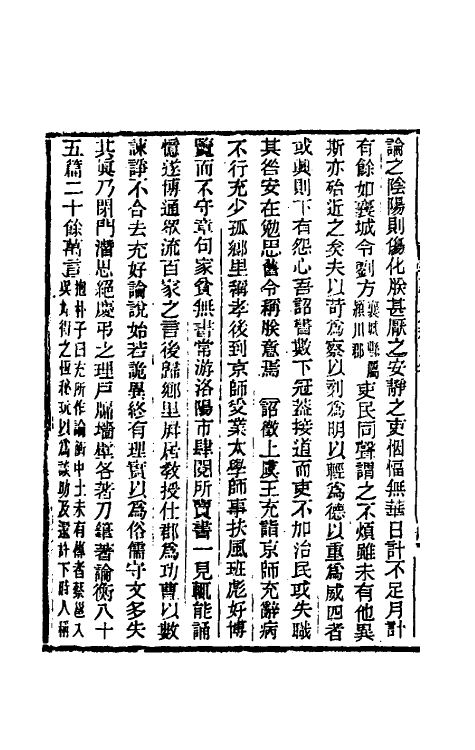 論之陰陽則傷化朕甚厭之安靜之吏悃愊無華日計不足月計
有餘如襄城令劉方襄城縣屬潁川郡吏民同聲謂之不煩雖未有他異
斯亦殆近之矣夫以苛為察以刻為明以輕為德以重為威四者
或興則下有怨心吾詔書數下冠蓋接道而吏不加治民或失職
其咎安在勉思舊令稱朕意焉 詔徵上虞王充詣京師充辭病
不行充少孤鄉里稱孝後到京師受業太學師事扶風班彪好博
覽而不守章句家貧無書常游洛陽市肆閱所賣書一見輒能誦
憶遂博通眾流百家之言後歸鄉里屏居教授仕郡為功曹以數
諫諍不合去充好論說始若詭異終有理實以為俗儒守文多失
其真乃閉門潛思絕慶弔之禮戶牖墻壁各著刀筆著論衡八十
五篇二十餘萬言抱朴子曰充所作論衡中土未有傳者蔡邕入吳始得之恆秘玩以為談助及還許下時人稱